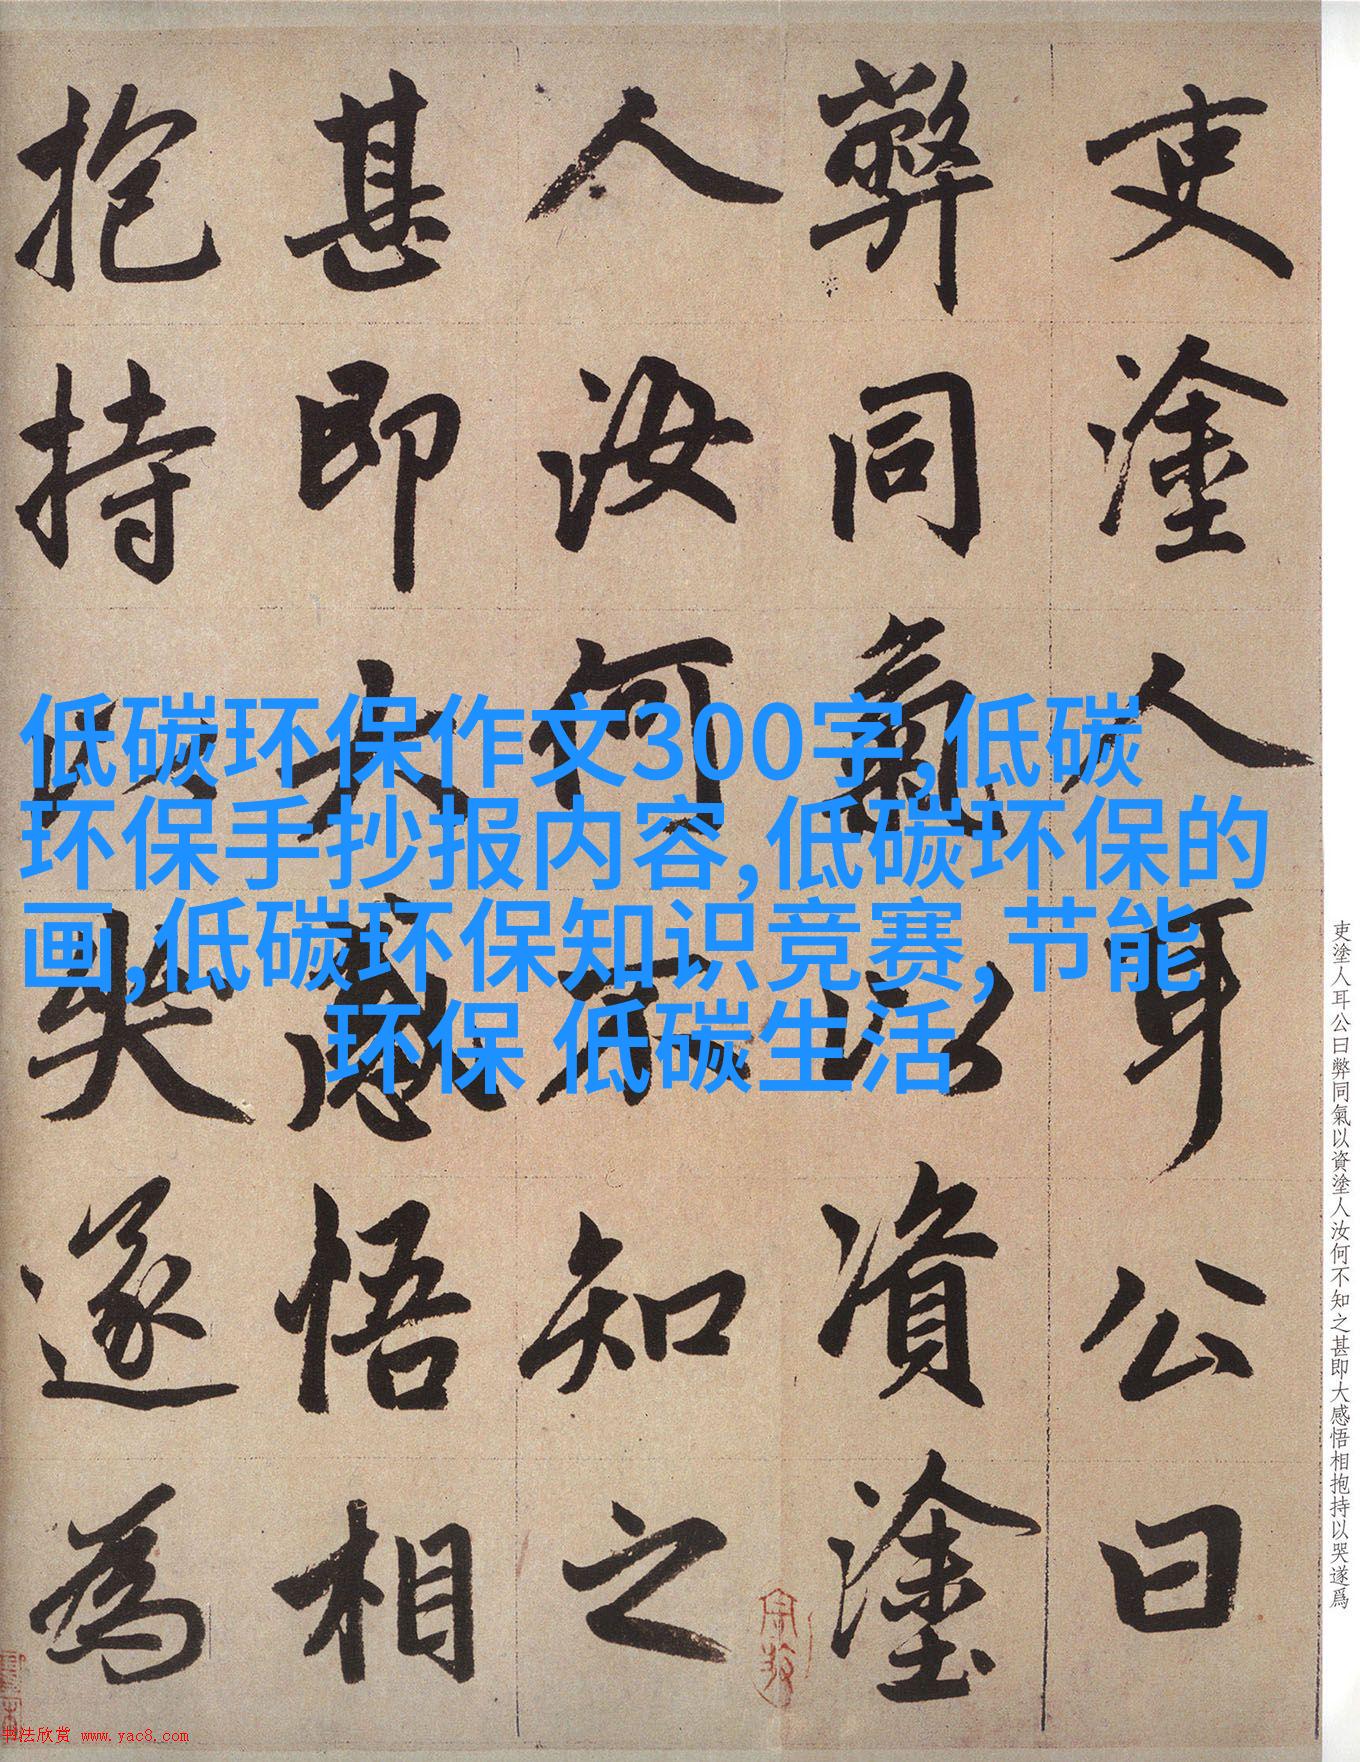 吏塗人耳公曰
弊同氣以資塗
人汝何不知之
甚即大感悟相
抱持以哭遂為
低碳环保作文300字,低碳
环保手抄报内容,低碳环保的
画,低碳环保知识竞赛,节能
环保 低碳生活
吏塗人耳公曰弊同氣以資塗人汝何不知之甚即大感悟相抱持以哭遂爲
书法欣赏 www.yac8.com